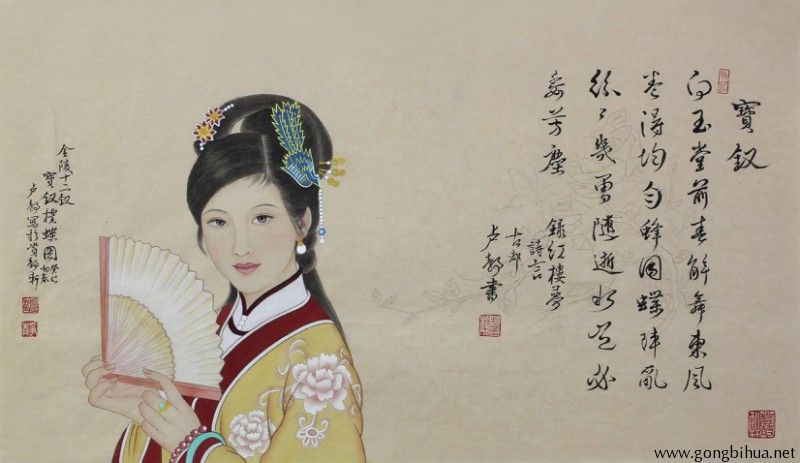 寶釵
白玉堂前春解舞東風
卷得均匀蜂圍蝶陣亂
紛々幾曾隨逝水豈必
委芳塵
錄紅樓夢
詩言
古都
卢靜書
金陵十二釵
寶釵撲蝶圖
癸巳
初春
卢靜寫於
www.gongbihua.net